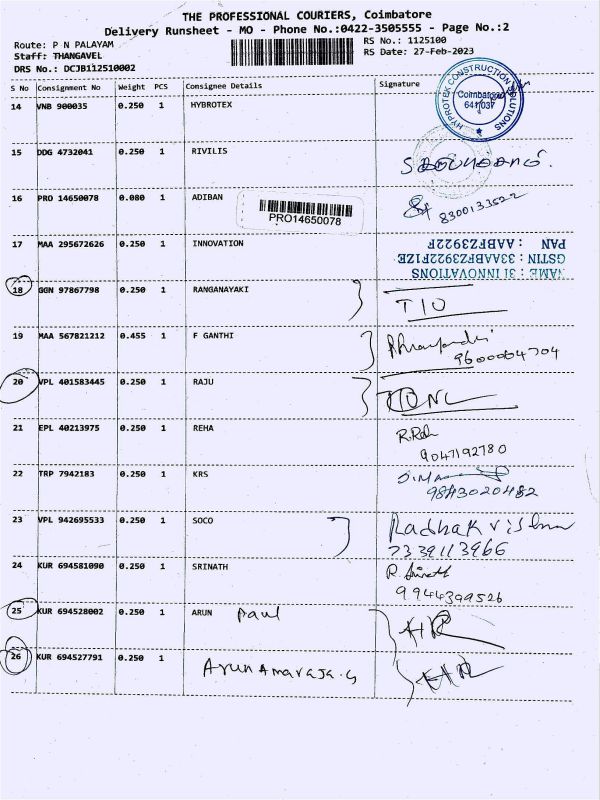 THE PROFESSIONAL COURIERS, Coimbatore
Delivery Runsheet - MO - Phone No.:0422-3505555 - Page No.:2
Route: P N PALAYAM
RS No.: 1125100
Staff: THANGAVEL
RS Date: 27-Feb-2023
DRS No.: DCJB112510002
S No Consignment No Weight PCS Consignee Details Signature
HYPROTEK CONSTRUCTION SOLUTIONS
Coimbatore
641 037
14 VNB 900035 0.250 1 HYBROTEX
15 DDG 4732041 0.250 1 RIVILIS
16 PRO 14650078 0.080 1 ADIBAN
PRO14650078
8300133522
17 MAA 295672626 0.250 1 INNOVATION
PAN : AABFZ3922F
GSTIN : 33AABFZ3922F1ZE
NAME : 3I INNOVATIONS
18 GGN 97867798 0.250 1 RANGANAYAKI
TIO
19 MAA 567821212 0.455 1 F GANTHI
9600004704
20 VPL 401583445 0.250 1 RAJU
21 EPL 40213975 0.250 1 REHA
9047192780
22 TRP 7942183 0.250 1 KRS
9843020482
23 VPL 942695533 0.250 1 SOCO
Radhakrishna
7339113966
24 KUR 694581090 0.250 1 SRINATH
9944399526
25 KUR 694528002 0.250 1 ARUN Paul
26 KUR 694527791 0.250 1
Arun Amaraja.G